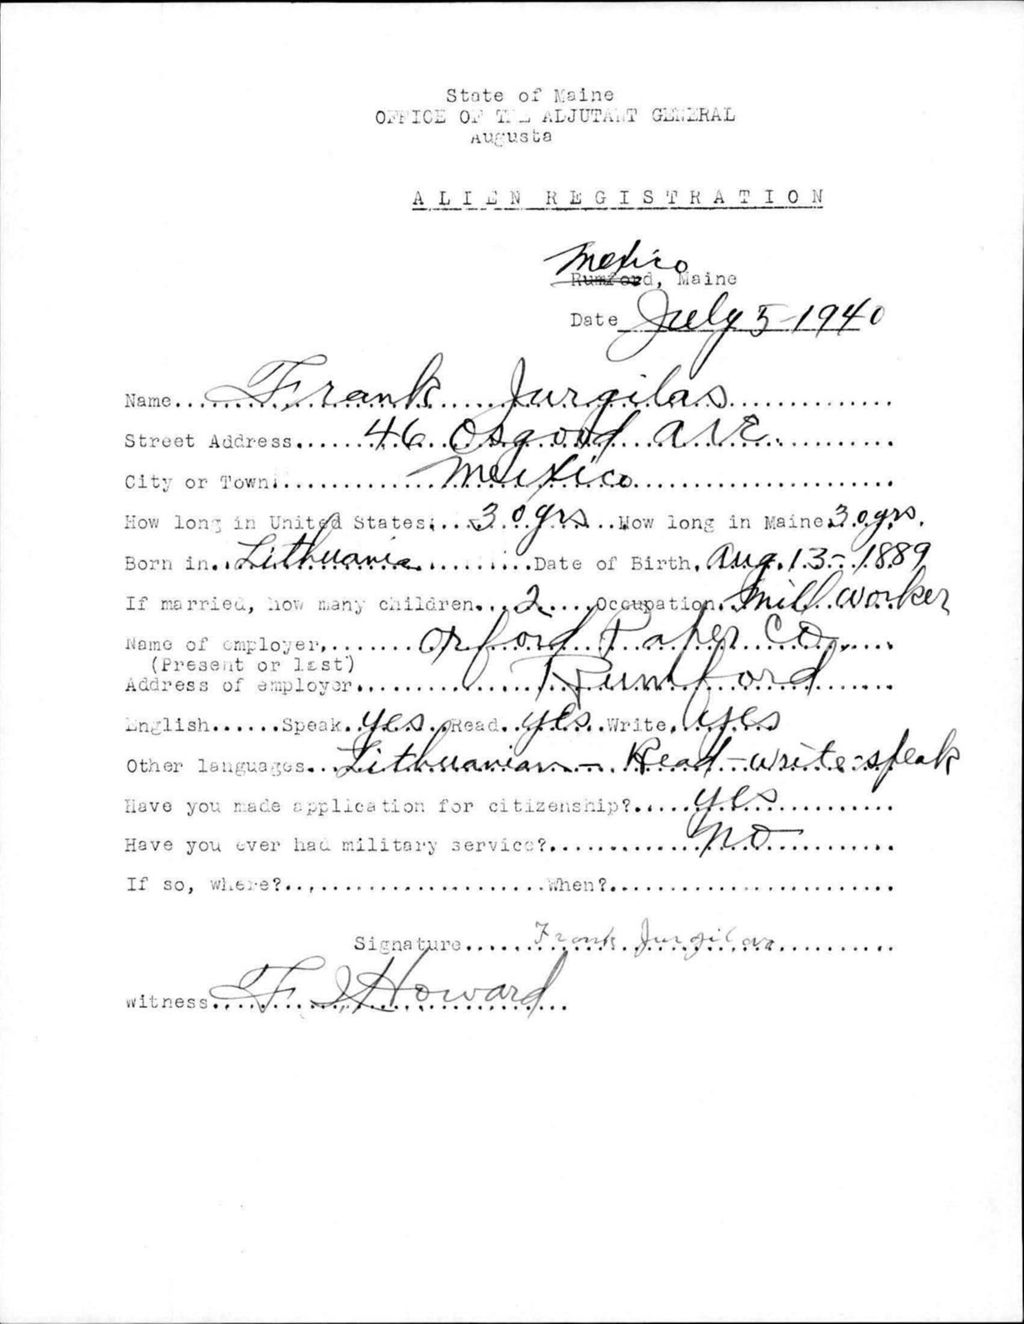 State of Maine
OFFICE OF THE ADJUTANT GENERAL
Augusta
ALIEN REGISTRATION
Mexico
Rumford, Maine
Date July 5-1940
Name Frank Jurgilas
Street Address 46 Osgood Ave.
City or Town Mexico
How long in United States 30 yrs How long in Maine 30 yrs.
Born in Lithuania Date of Birth Aug. 13 - 1889
If married, how many children 2 Occupation Mill worker
Name of employer Oxford Paper Co.
(Present or last)
Address of employer Rumford
English Speak yes Read yes Write yes
Other languages Lithuanian - Read - write - speak
Have you made application for citizenship? yes
Have you ever had military service? no
If so, where? When?
Signature Frank Jurgilas
Witness F. J Howard